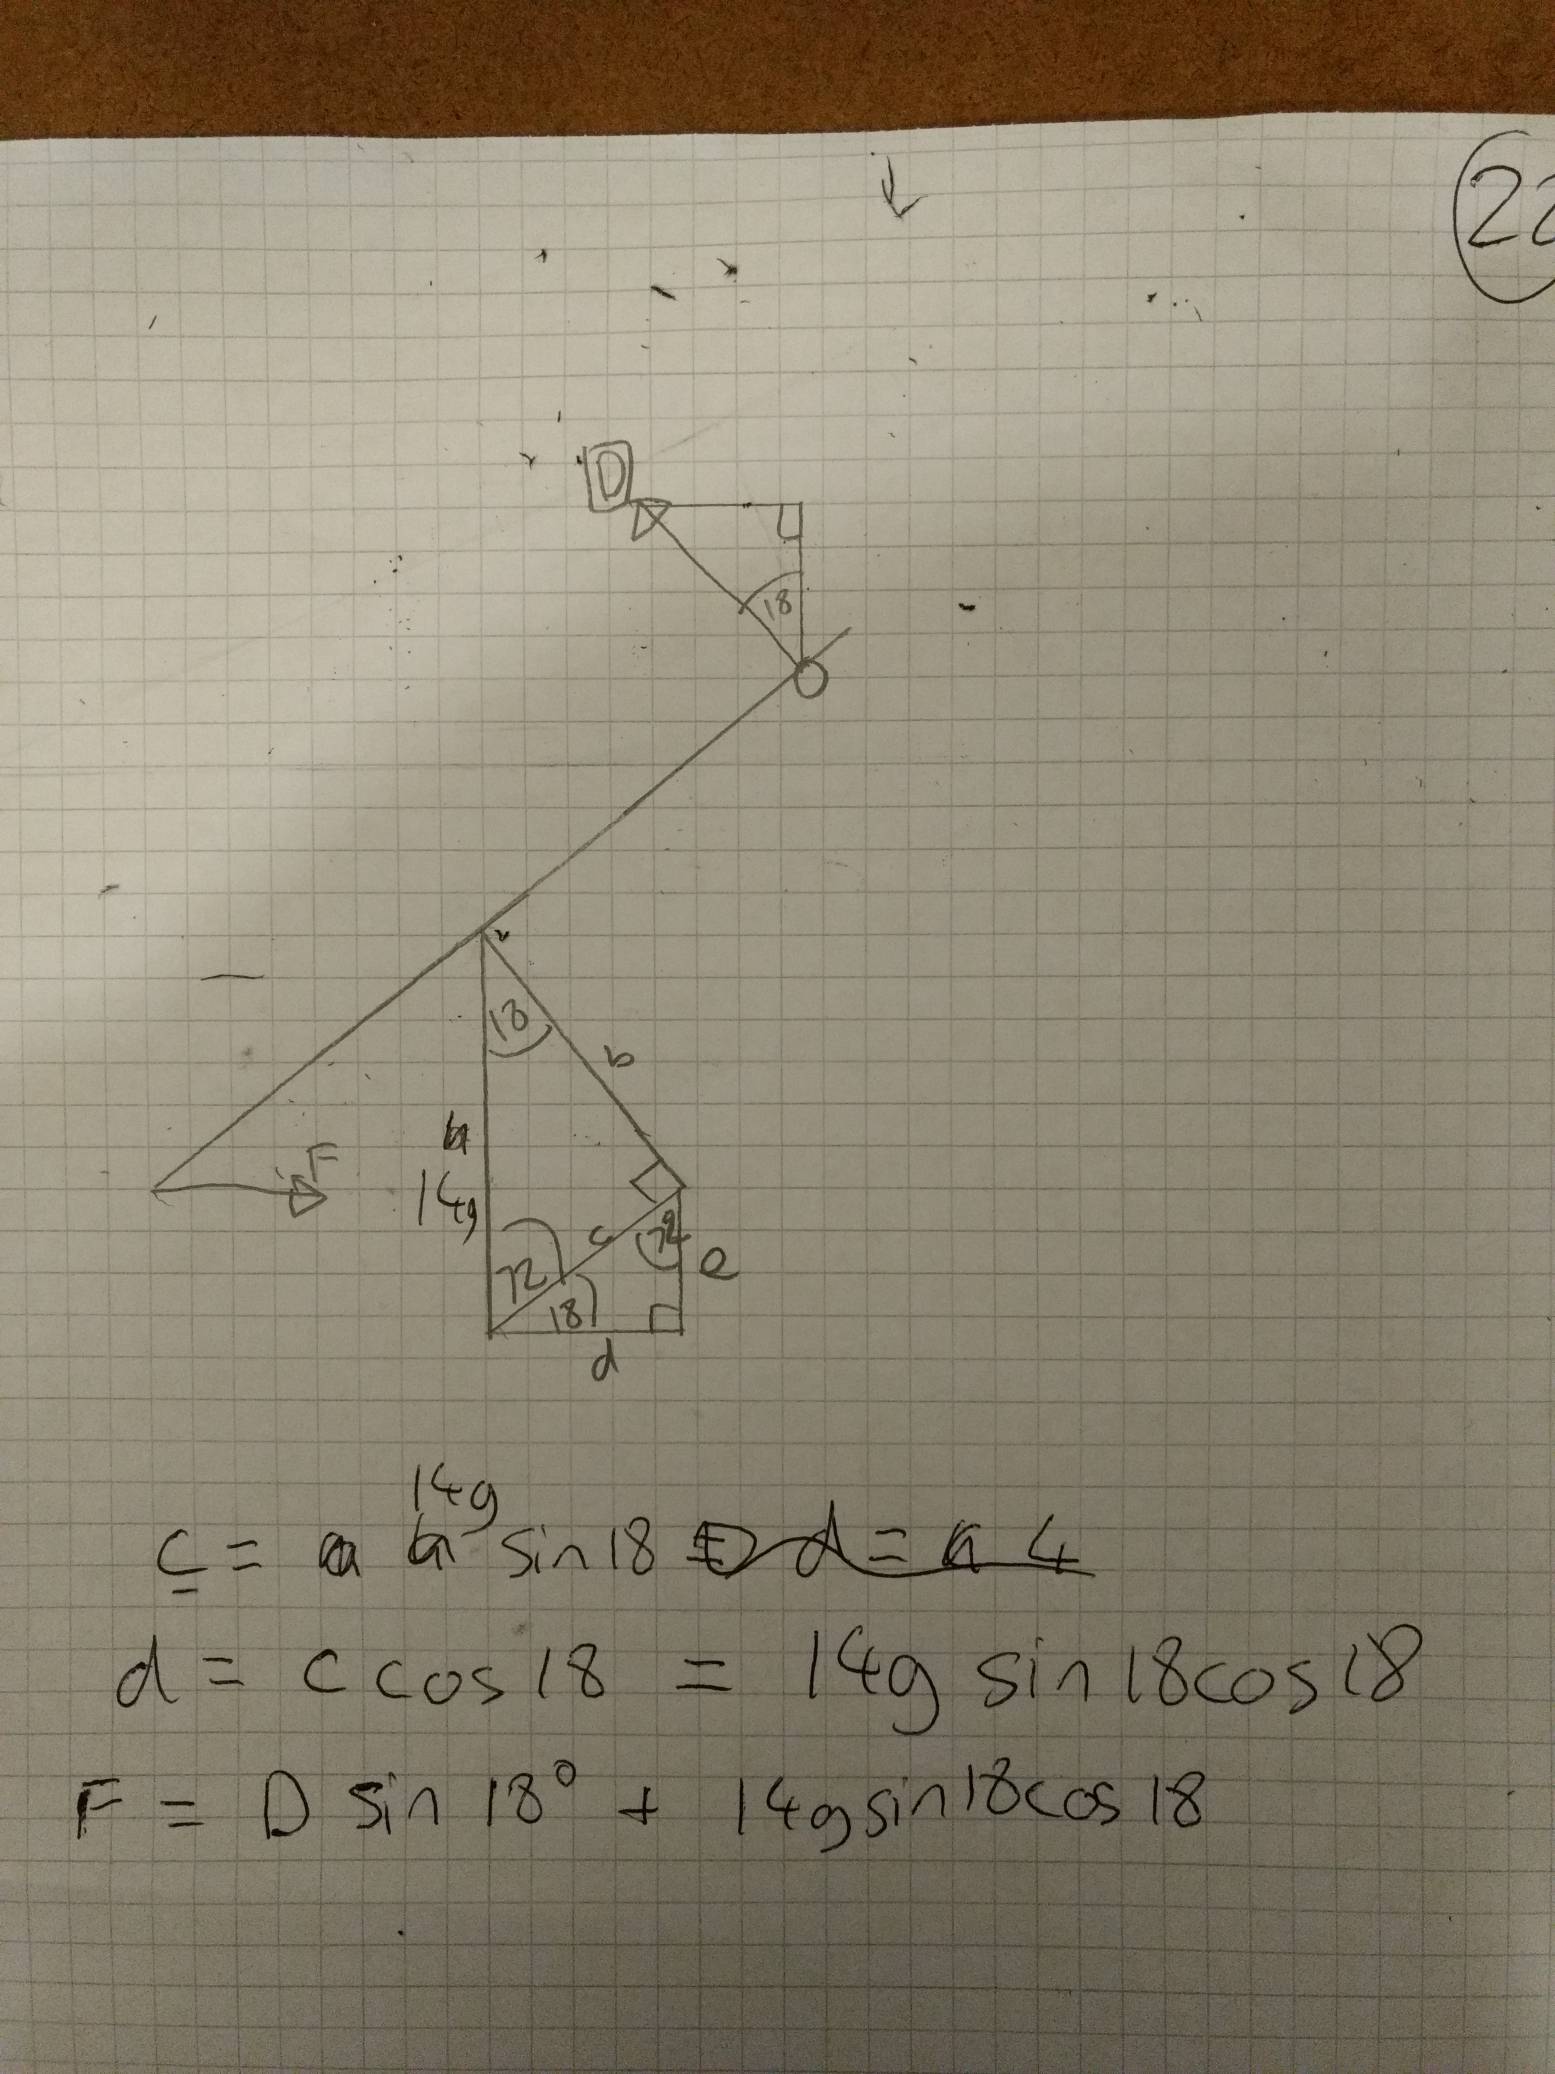 D
18
18
b
14g
F
c
72
72
e
18
d
14g
c = sin 18
d = c cos 18 = 14g sin 18 cos 18
F = D sin 18° + 14g sin 18 cos 18